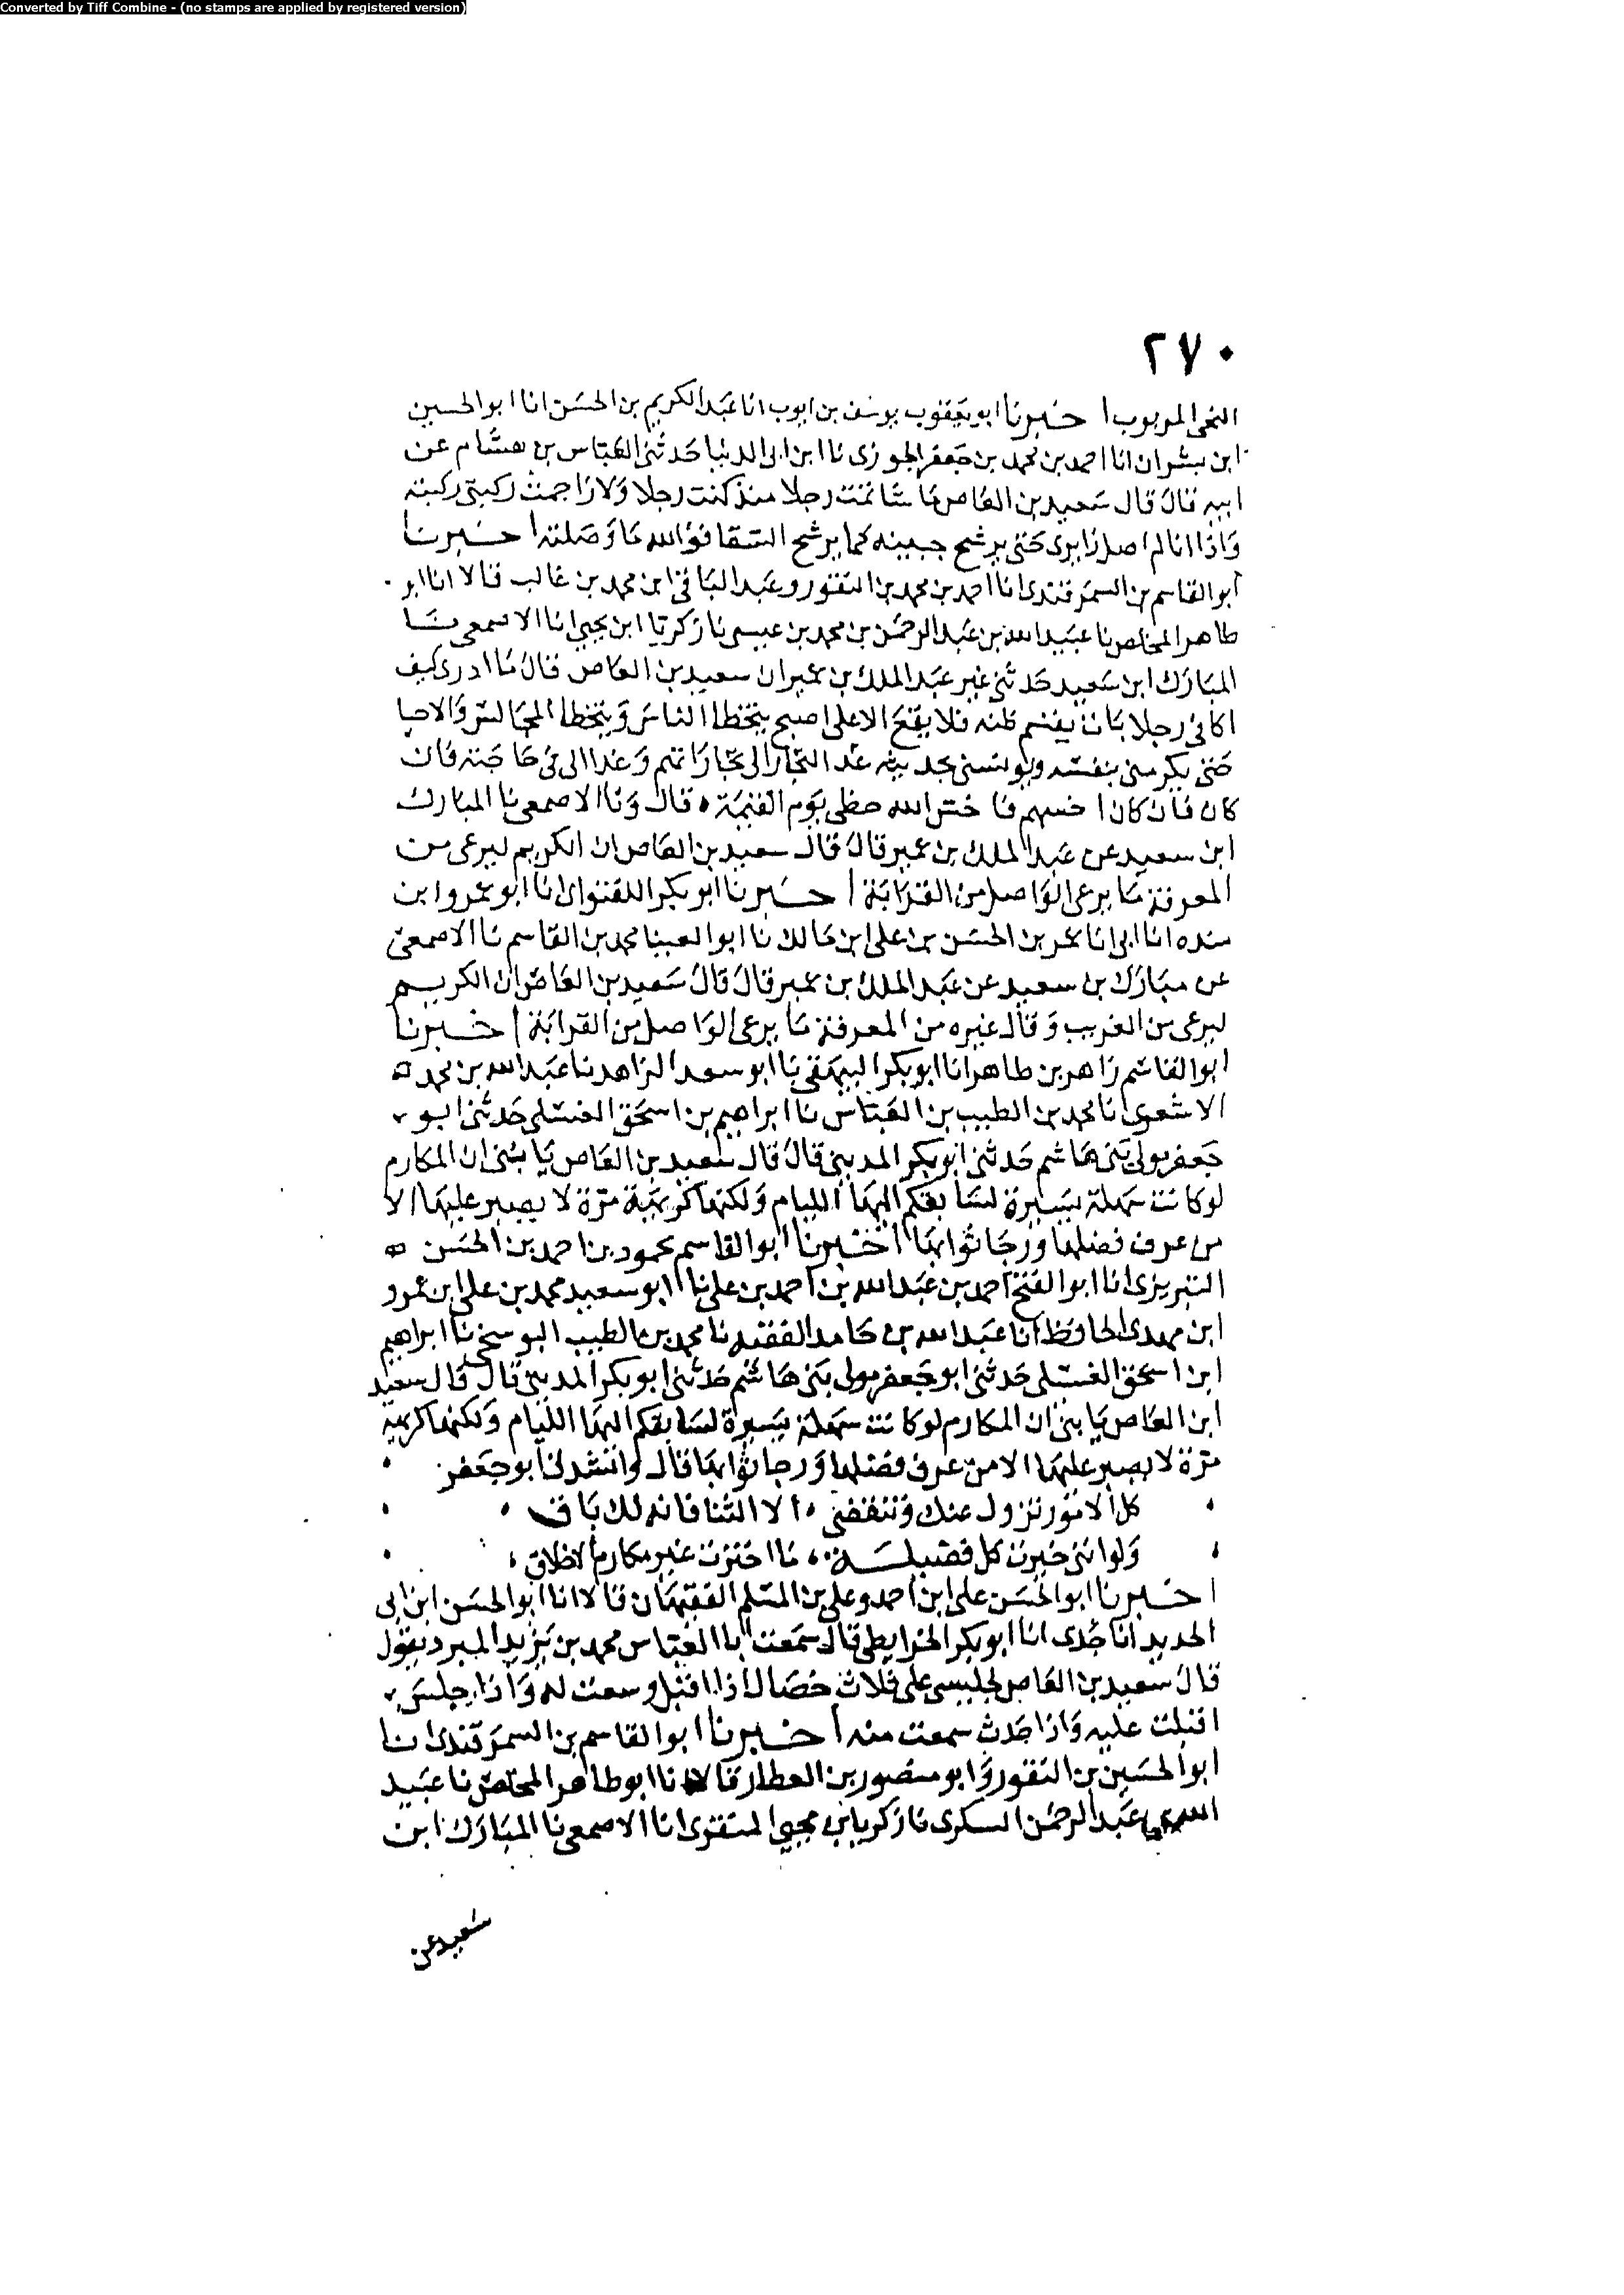 Converted by Tiff Combine - (no stamps are applied by registered version)
٢٧٠
المربوب اخبرنا ابو يعقوب يوسف بن ايوب انا عبد الكريم بن الحسن انا ابو الحسين
ابن بشران انا احمد بن محمد بن جعفر الجوزى نا ابن ابى الدنيا حدثنى العباس بن هشام عن
ابيه قال قال سعيد بن العاص ما شاتمت رجلا منذ كنت رجلا ولا زاحمت ركبتى ركبته
واذا انا لم اصل زايرى حتى يرشح جبينه كما يرشح السقا فوالله ما وصلته اخبرنا
ابو القاسم بن السمرقندى انا احمد بن محمد بن النقور وعبد الباقى ابن محمد بن غالب قالا انا ابو
طاهر المخلص نا عبيد الله بن عبد الرحمن بن محمد بن عيسى نا زكريا ابن يحيى انا الاصمعى نا
المبارك ابن سعيد حدثنى غير عبد الملك بن عمير ان سعيد بن العاص قال ما ادرى كيف
اكافى رجلا بات يقسم ظنه فلا يقع الا على اصبح يتخطا الناس ويتخطا المجالس والاحيا
حتى يكرمنى بنفسه ويونسنى بحديثه غدا التجار الى تجاراتهم وغدا الى فى حاجته فان
كان فان كان اخسهم فاخس الله حظى يوم القيمة ٠ قال ونا الاصمعى نا المبارك
ابن سعيد عن عبد الملك بن عمير قال قال سعيد بن العاص ان الكريم ليرعى من
المعرفة ما يرعى الواصل من القرابة اخبرنا ابو بكر اللفتوانى انا ابو عمرو ابن
منده انا ابى انا عمر بن الحسن بن على ابن مالك نا ابو العينا محمد بن القاسم نا الاصمعى
عن مبارك بن سعيد عن عبد الملك بن عمير قال قال سعيد بن العاص ان الكريم
ليرعى من الغريب وقال غيره من المعرفة ما يرعى الواصل من القرابة اخبرنا
ابو القاسم زاهر بن طاهر انا ابو بكر البيهقى نا ابو سعد الزاهد نا عبد الله بن محمد ه
الاشعرى نا محمد بن الطيب بن العباس نا ابراهيم بن اسحق الغسلى حدثنى ابو
جعفر مولى بنى هاشم حدثنى ابو بكر المدينى قال قال سعيد بن العاص يا بنى ان المكارم
لو كانت سهلة يسيرة لسابقكم اليها الليام ولكنها كريهة مرة لا يصبر عليها الا
من عرف فضلها ورجا ثوابها اخبرنا ابو القاسم محمود بن احمد بن الحسن ه
التبريزى انا ابو الفتح احمد بن عبد الله بن احمد بن على نا ابو سعيد محمد بن على ابن عمرو
ابن مهدى الحافظ انا عبد الله بن حامد الفقيه نا محمد بن الطيب البوسنجى نا ابراهيم
ابن اسحق الغسلى حدثنى ابو جعفر مولى بنى هاشم حدثنى ابو بكر المدينى قال قال سعيد
ابن العاص يا بنى ان المكارم لو كانت سهلة يسيرة لسابقكم اليها الليام ولكنها كريهة
مرة لا يصبر عليها الا من عرف فضلها ورجا ثوابها قال وانشدنا ابو جعفر
كل الامور تزول عنك وتنقضى ٠ الا الثنا فانه لك باق
ولو اننى خيرت كل فضيلة ٠ ما اخترت غير مكارم الاخلاق
اخبرنا ابو الحسن على ابن احمد وعلى بن المسلم الفقيهان قالا انا ابو الحسن ابن ابى
الحديد انا جدى انا ابو بكر الخرايطى قال سمعت ابا العباس محمد بن يزيد المبرد يقول
قال سعيد بن العاص لجليسى على ثلاث خصال اذا اقبل وسعت له واذا جلس
اقبلت عليه واذا حدث سمعت منه اخبرنا ابو القاسم بن السمرقندى انا
ابو الحسين بن النقور وابو منصور بن العطار قالا نا ابو طاهر المخلص نا عبيد
الله بن عبد الرحمن السكرى نا زكريا بن يحيى المنقرى انا الاصمعى نا المبارك ابن
سعيد عن